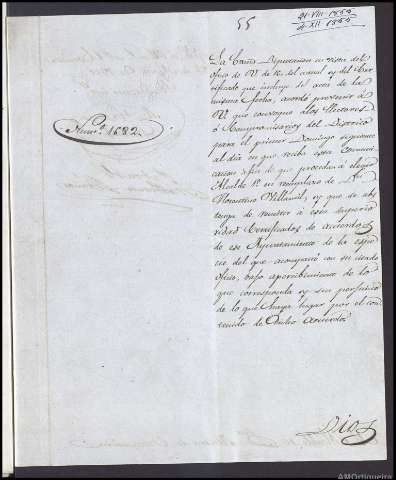 55
21-VIII-1855
4-XII-1855
Num.º 1682.
La Exma Diputacion en vista del
oficio de V. de 12 del actual y del Cer-
tificado que incluye del acta de la
misma fecha, acordó prevenir á
V. que convoque á los Electores
ó Compromisarios del Distrito
para el primer Domingo siguiente
al dia en que reciba esta Comuni-
cacion á fin de que procedan á elegir
Alcalde 1º en reemplazo de Dn
Florentino Villamil, y que se abs-
tenga de remitir á esta superio-
ridad Certificados de acuerdos
de ese Ayuntamiento de la espe-
cie del que acompañó con su citado
oficio, bajo apercibimiento de lo
que corresponda y sin perjuicio
de lo que haya lugar por el con-
tenido de dicho acuerdo.
Dios
AMOrtigueira